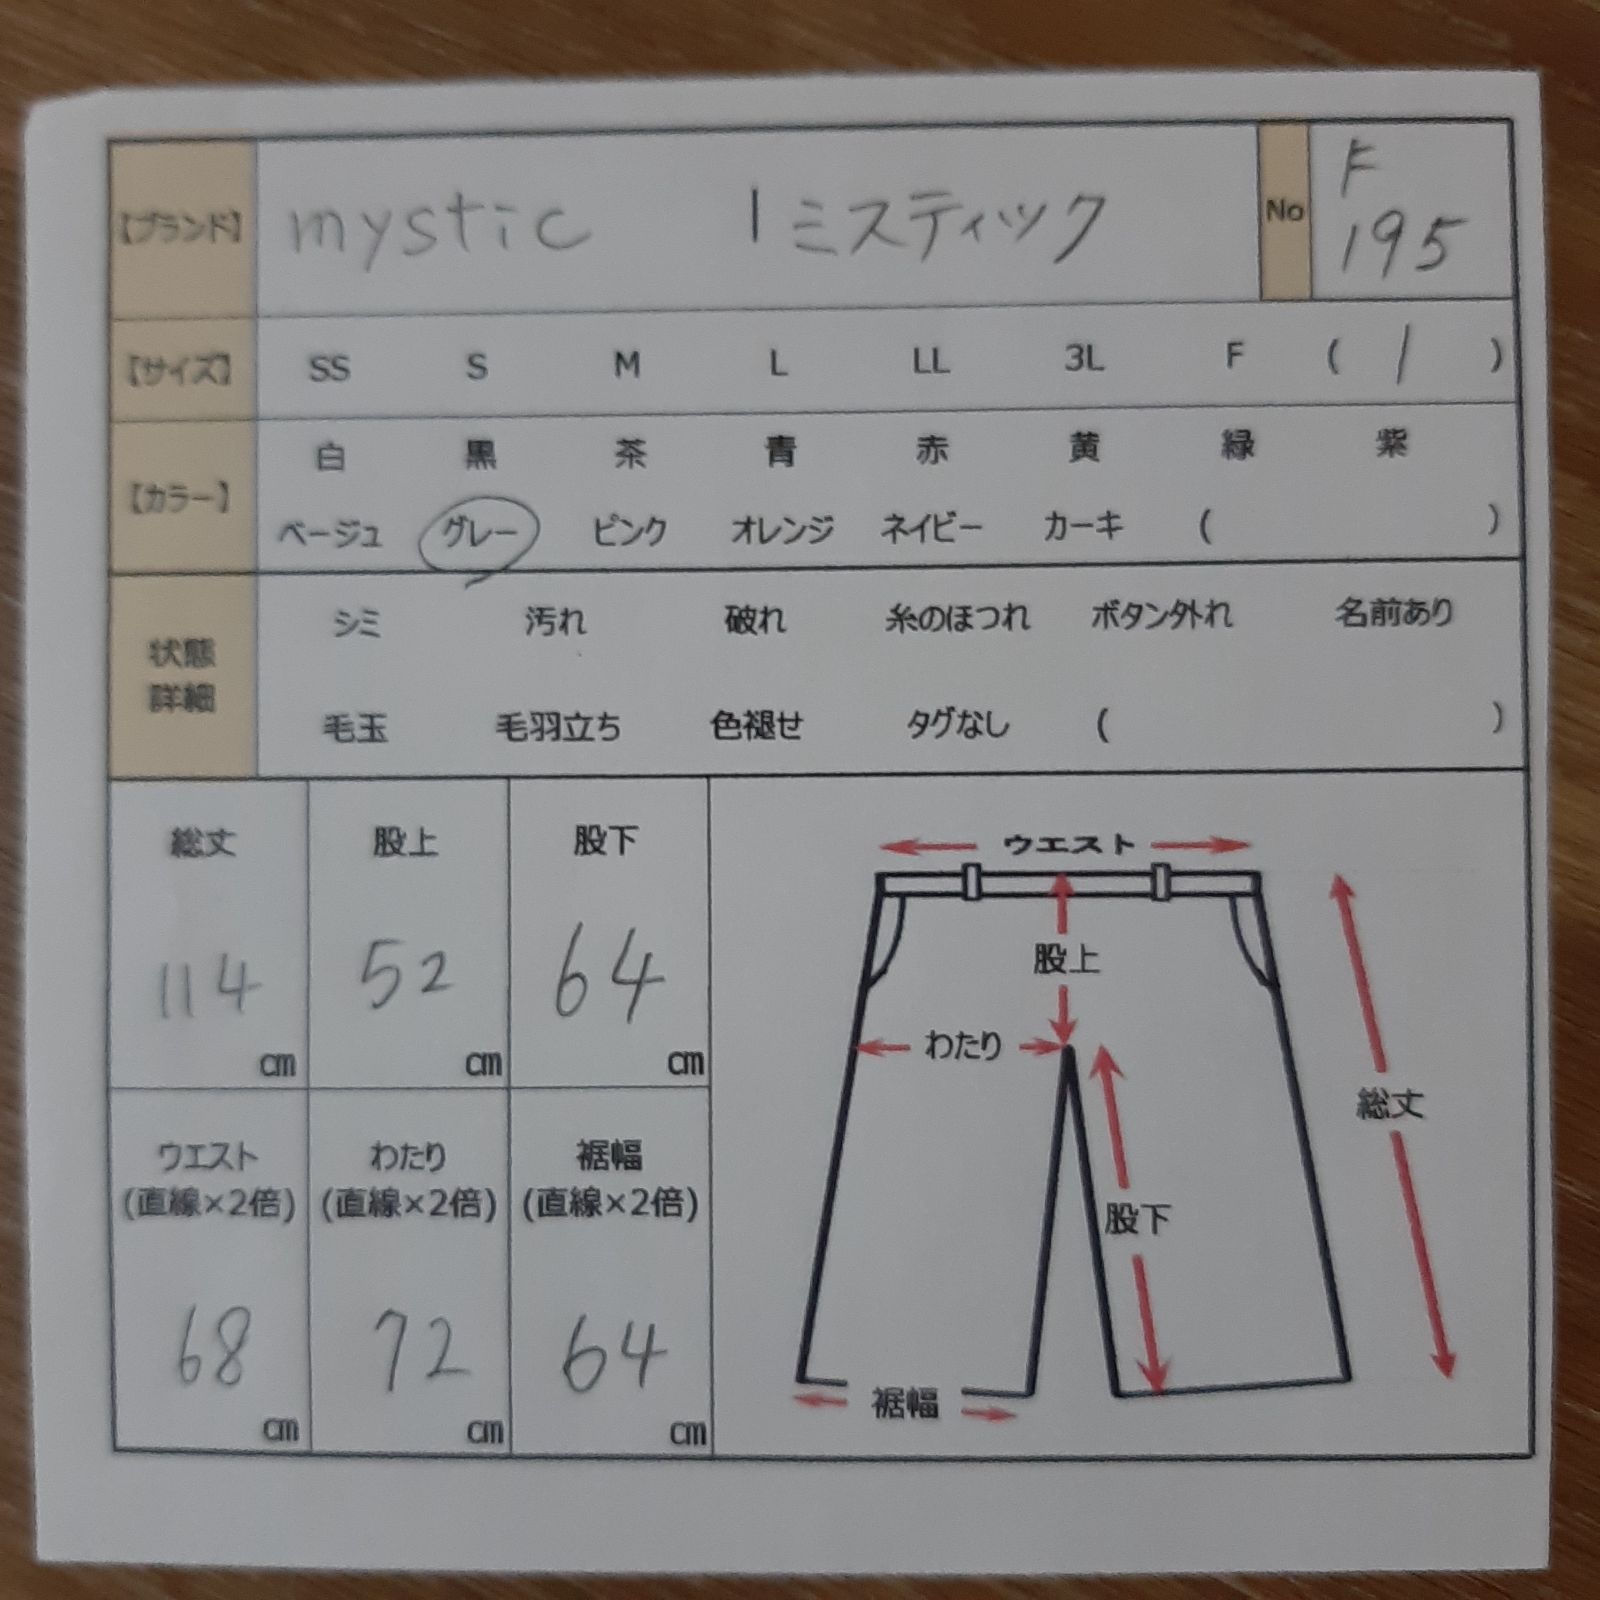 【ブランド】 mystic | ミスティック No F 195
【サイズ】 SS S M L LL 3L F ( 1 )
【カラー】 白 黒 茶 青 赤 黄 緑 紫
ベージュ グレー ピンク オレンジ ネイビー カーキ ( )
状態詳細 シミ 汚れ 破れ 糸のほつれ ボタン外れ 名前あり
毛玉 毛羽立ち 色褪せ タグなし ( )
総丈 股上 股下
114 52 64
cm cm cm
ウエスト わたり 裾幅
(直線×2倍) (直線×2倍) (直線×2倍)
68 72 64
cm cm cm
ウエスト
股上
わたり
総丈
股下
裾幅